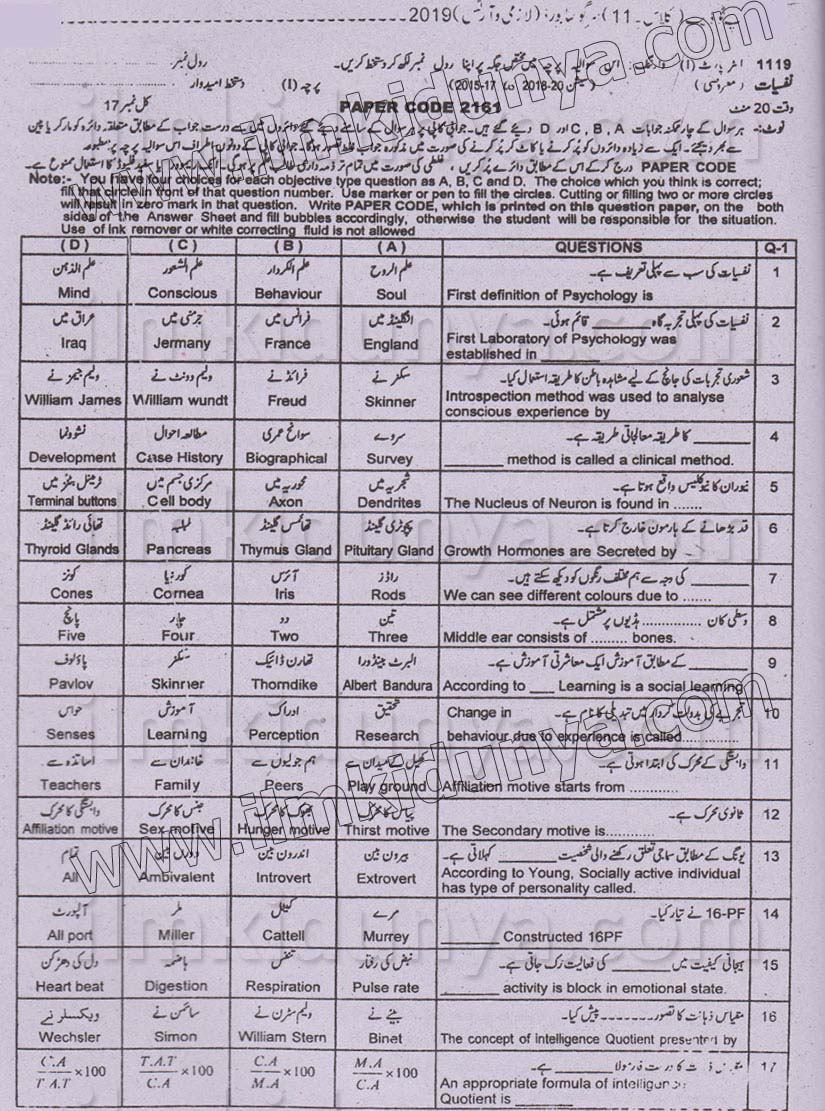 2019 (لازمی و آرٹس)
1119
رول نمبر
نفسیات (معروضی)
(سیشن 2015-17 تا 2018-20)
پرچہ (I)
دستخط امیدوار
وقت 20 منٹ
PAPER CODE 2161
کل نمبر 17
Note:- You have four choices for each objective type question as A, B, C and D. The choice which you think is correct;
fill that circle in front of that question number. Use marker or pen to fill the circles. Cutting or filling two or more circles
will result in zero mark in that question. Write PAPER CODE, which is printed on this question paper, on the both
sides of the Answer Sheet and fill bubbles accordingly, otherwise the student will be responsible for the situation.
Use of ink remover or white correcting fluid is not allowed
( D ) ( C ) ( B ) ( A ) QUESTIONS Q-1
علم الذہن علم الشعور علم الکردار علم الروح نفسیات کی سب سے پہلی تعریف ہے۔ 1
Mind Conscious Behaviour Soul First definition of Psychology is
عراق میں جرمنی میں فرانس میں انگلینڈ میں نفسیات کی پہلی تجربہ گاہ ________ قائم ہوئی۔ 2
Iraq Jermany France England First Laboratory of Psychology was
established in ________
ولیم جیمز نے ولیم وونٹ نے فرائڈ نے سکنر نے شعوری تجربات کی جانچ کے لیے مشاہدہ باطن کا طریقہ استعمال کیا۔ 3
William James William wundt Freud Skinner Introspection method was used to analyse
conscious experience by
نشوونما مطالعہ احوال سوانح عمری سروے ________ کا طریقہ معالجاتی طریقہ ہے۔ 4
Development Case History Biographical Survey ________ method is called a clinical method.
ٹرمینل بٹنز میں مرکزی جسم میں محوریہ میں شجریہ میں نیوران کا نیوکلیس واقع ہوتا ہے۔ 5
Terminal buttons Cell body Axon Dendrites The Nucleus of Neuron is found in .......
تھائی رائڈ گلینڈ لبلبہ تھائمس گلینڈ پچوٹری گلینڈ قد بڑھانے کے ہارمون خارج کرتا ہے۔ 6
Thyroid Glands Pancreas Thymus Gland Pituitary Gland Growth Hormones are Secreted by
کونز کورنیا آئرس راڈز ________ کی وجہ سے ہم مختلف رنگوں کو دیکھ سکتے ہیں۔ 7
Cones Cornea Iris Rods We can see different colours due to .......
پانچ چار دو تین وسطی کان .............. ہڈیوں پر مشتمل ہے۔ 8
Five Four Two Three Middle ear consists of ......... bones.
پاؤلوف سکنر تھارن ڈائیک البرٹ بینڈورا ________ کے مطابق آموزش ایک معاشرتی آموزش ہے۔ 9
Pavlov Skinner Thorndike Albert Bandura According to ___ Learning is a social learning
حواس آموزش ادراک تحقیق Change in تجربے کی بدولت کردار میں تبدیلی کا نام ہے۔ 10
Senses Learning Perception Research behaviour due to experience is called............
اساتذہ سے خاندان سے ہم جولیوں سے کھیل کے میدان سے وابستگی کے محرک کی ابتدا ہوتی ہے۔ 11
Teachers Family Peers Play ground Affiliation motive starts from ............
وابستگی کا محرک جنس کا محرک بھوک کا محرک پیاس کا محرک ثانوی محرک ہے۔ 12
Affiliation motive Sex motive Hunger motive Thirst motive The Secondary motive is............
تمام دورن بین اندرون بین بیرون بین یونگ کے مطابق سماجی تعلق رکھنے والی شخصیت ________ کہلاتی ہے۔ 13
All Ambivalent Introvert Extrovert According to Young, Socially active individual
has type of personality called.
آلپورٹ ملر کیٹل مرے 16-PF نے تیار کیا۔ 14
All port Miller Cattell Murrey ________ Constructed 16PF
دل کی دھڑکن ہاضمہ تنفس نبض کی رفتار ہیجانی کیفیت میں ________ کی فعالیت رک جاتی ہے۔ 15
Heart beat Digestion Respiration Pulse rate ________ activity is block in emotional state.
ویکسلر نے سائمن نے ولیم سٹرن نے بینے نے مقیاس ذہانت کا تصور ------- پیش کیا۔ 16
Wechsler Simon William Stern Binet The concept of intelligence Quotient presented by
C.A/T.A.T ×100 T.A.T/C.A ×100 C.A/M.A ×100 M.A/C.A ×100 17
An appropriate formula of intelligence
Quotient is ________
www.ilmkidunya.com